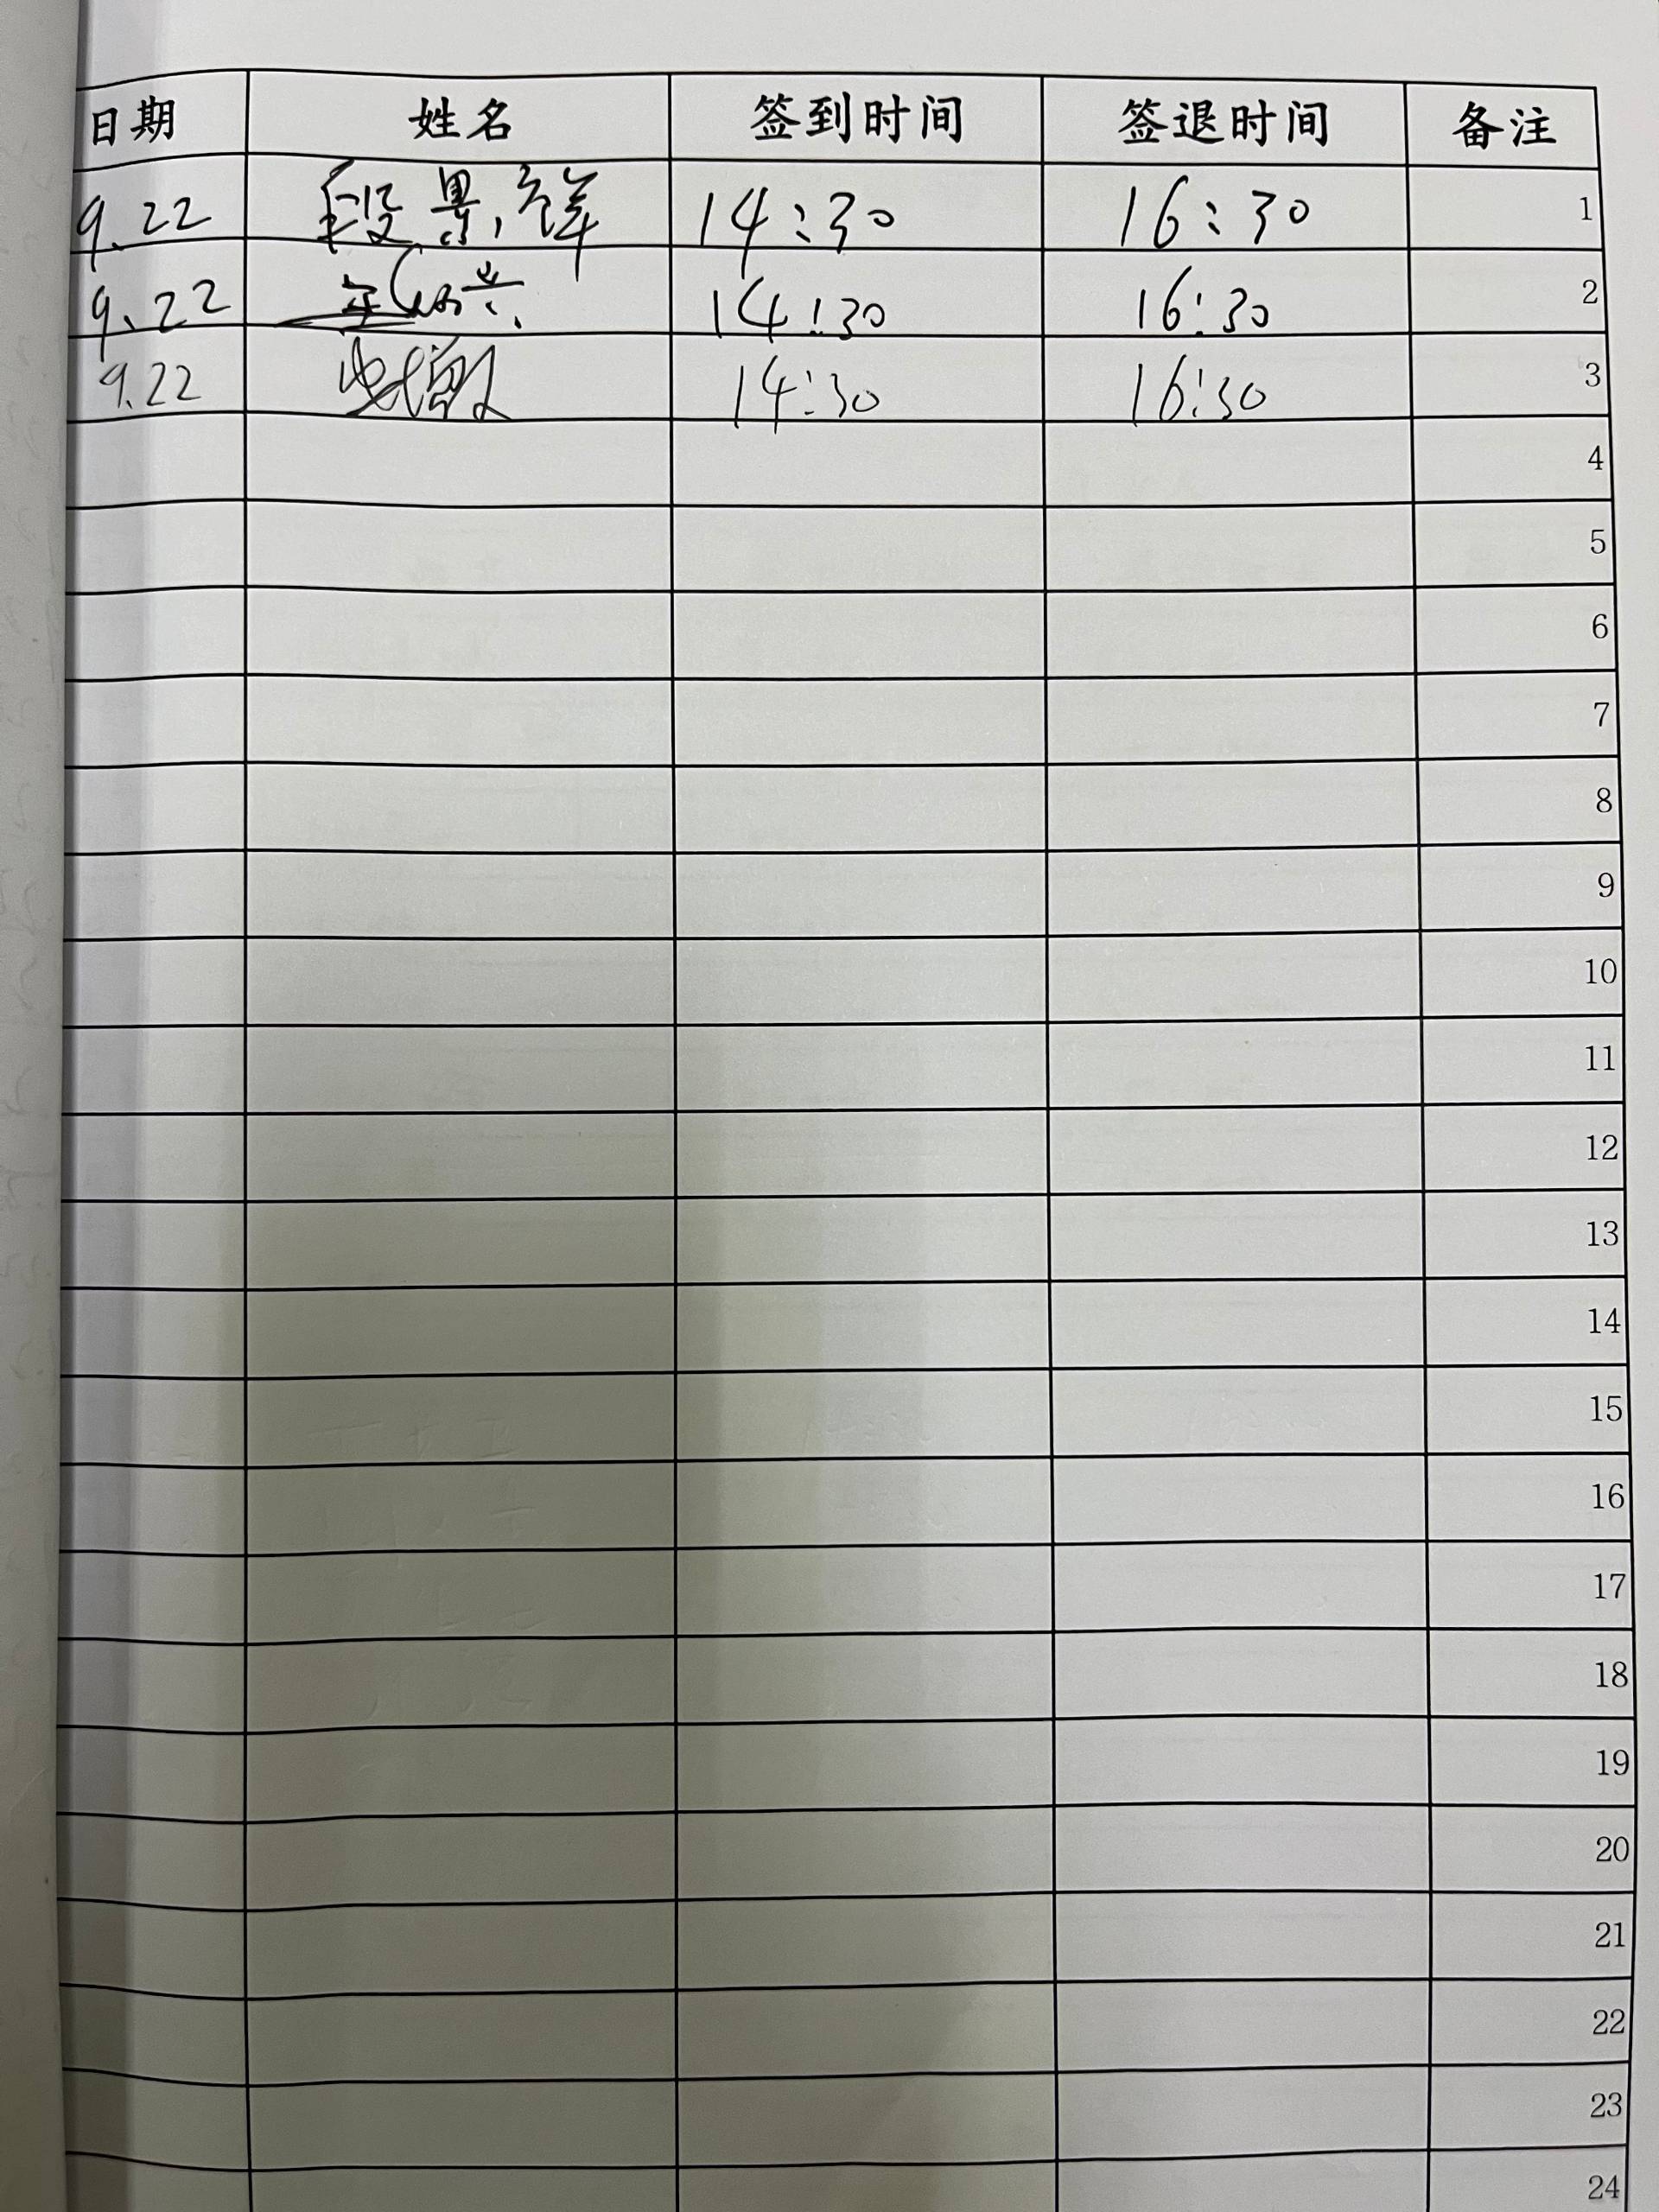 日期 姓名 签到时间 签退时间 备注
9.22 段景祥 14:30 16:30 1
9.22 14:30 16:30 2
9.22 14:30 16:30 3
4
5
6
7
8
9
10
11
12
13
14
15
16
17
18
19
20
21
22
23
24